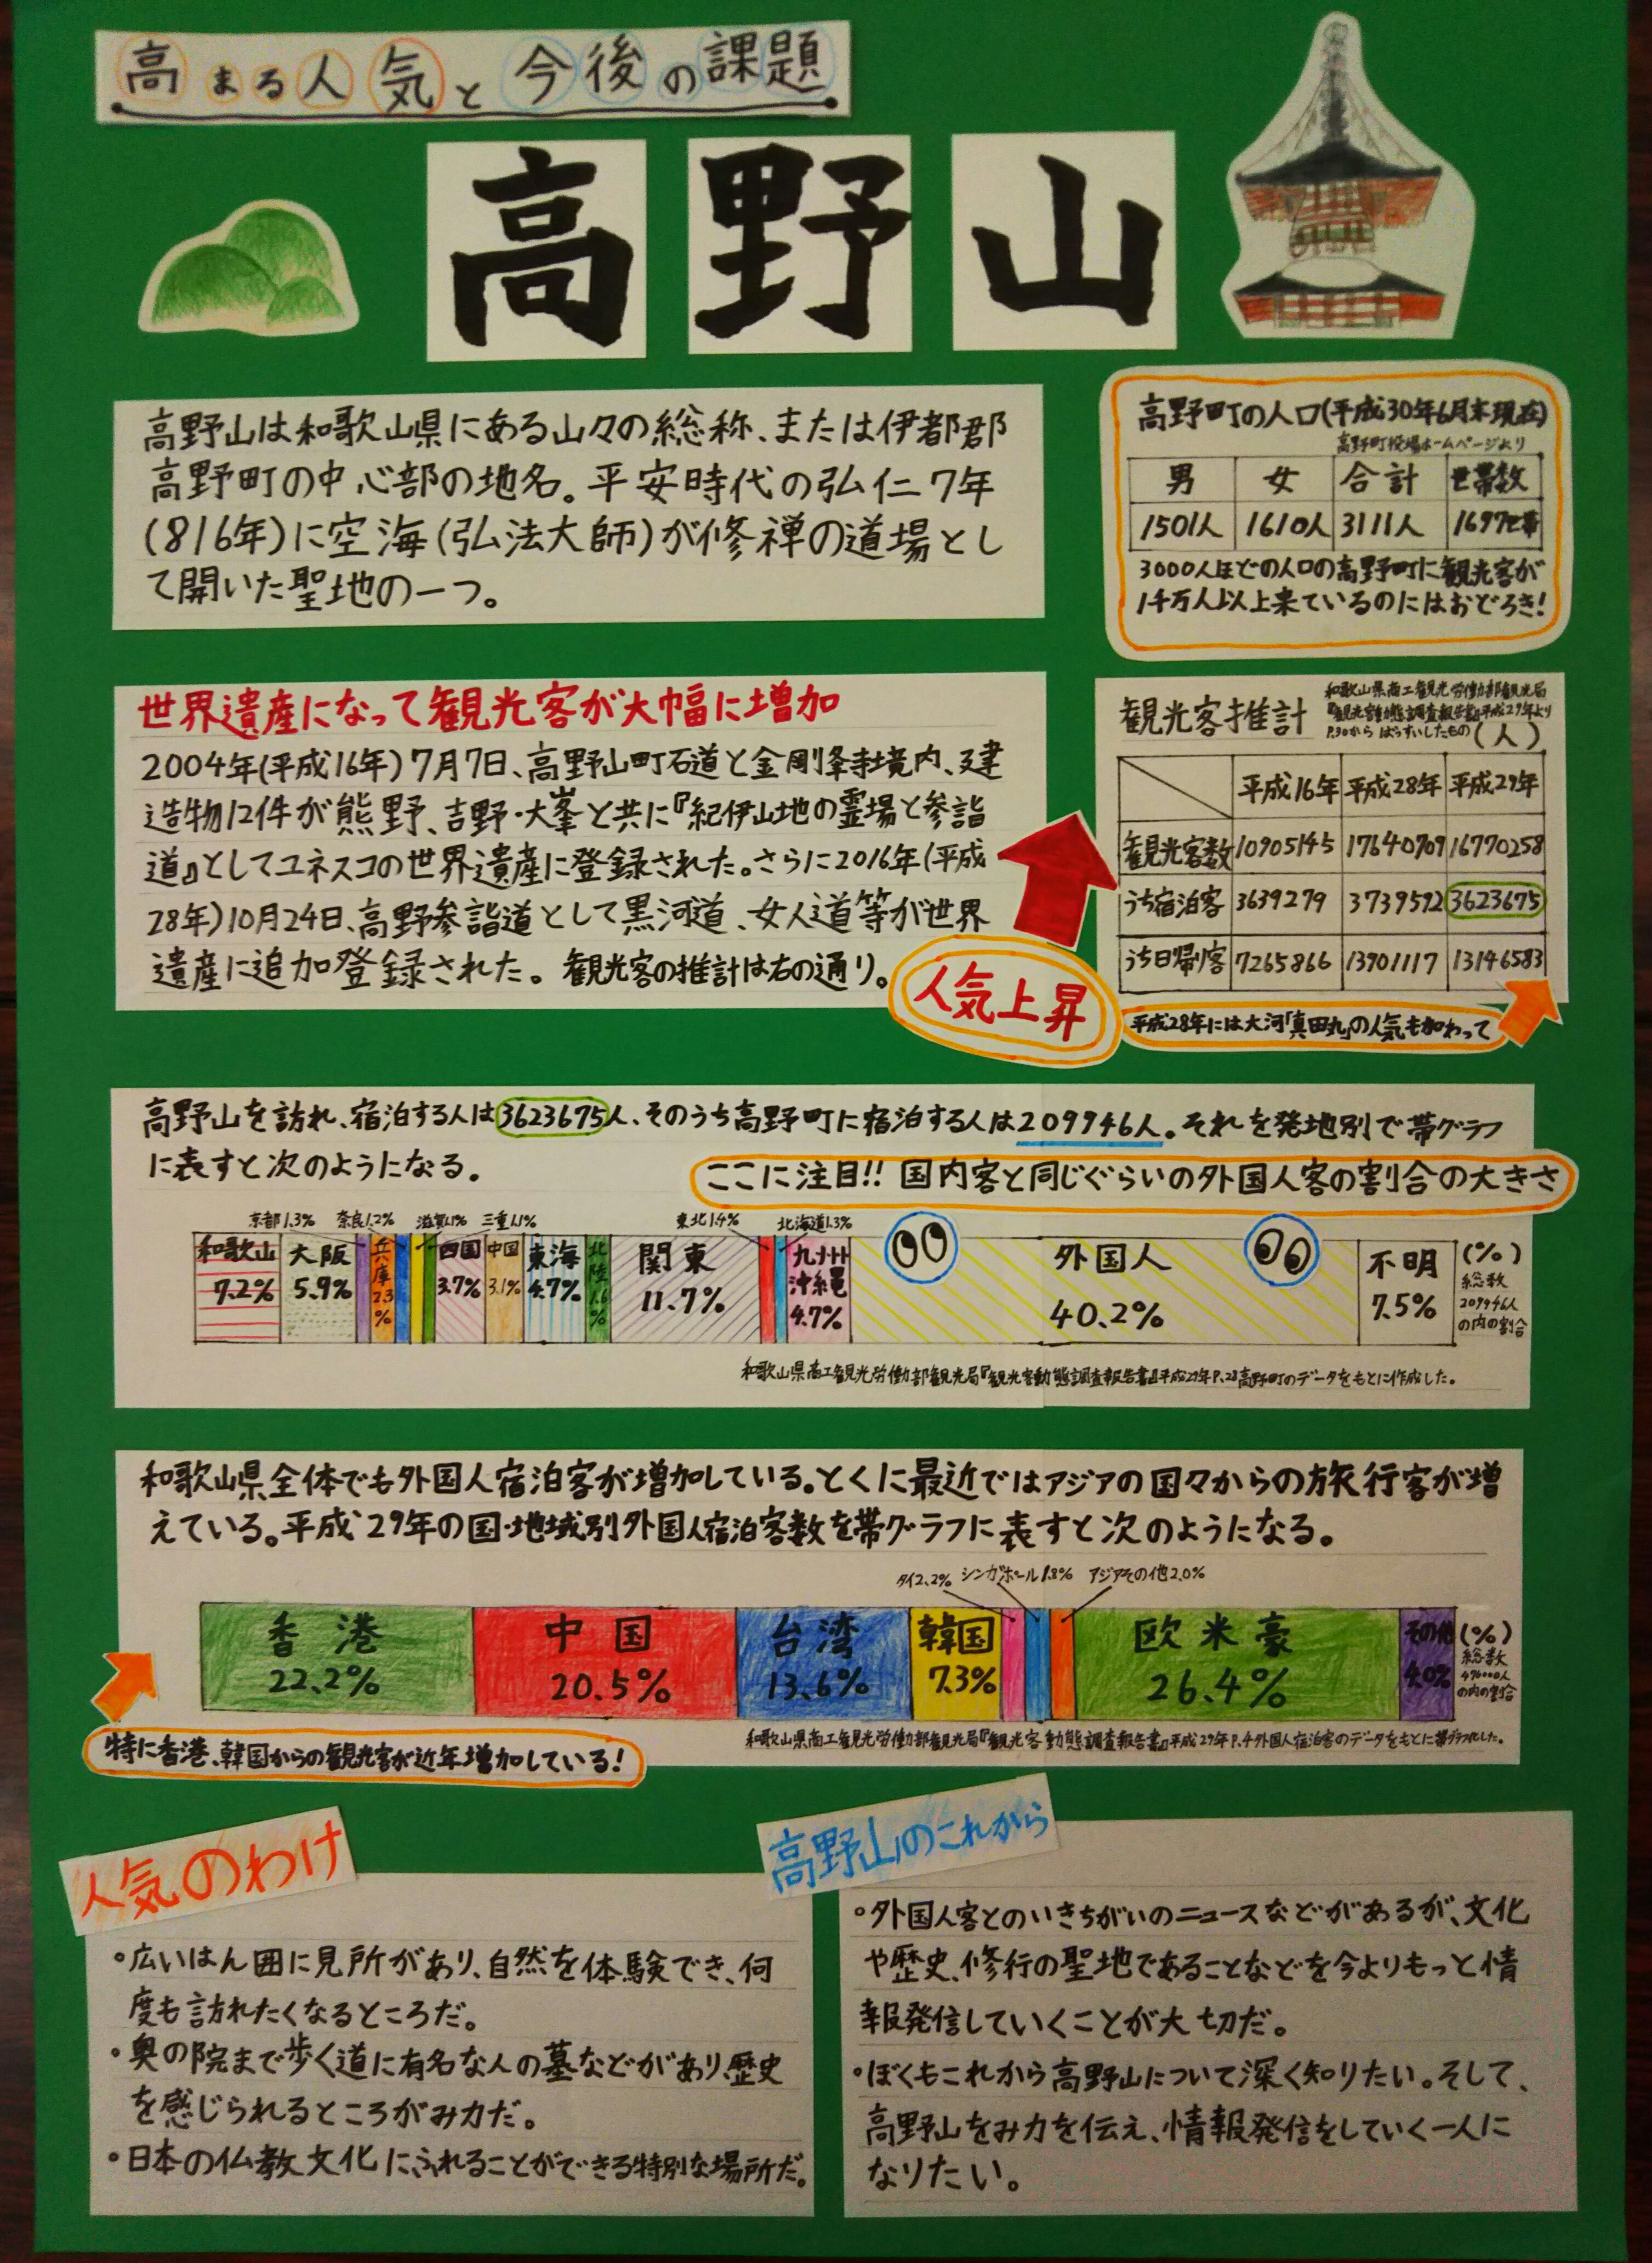 高まる人気と今後の課題
高野山
高野山は和歌山県にある山々の総称、または伊都郡
高野町の中心部の地名。平安時代の弘仁7年
(816年)に空海(弘法大師)が修禅の道場とし
て開いた聖地の一つ。
高野町の人口(平成30年6月末現在)
高野町役場ホームページより
男 女 合計 世帯数
1501人 1610人 3111人 1697世帯
3000人ほどの人口の高野町に観光客が
1千万人以上来ているのにはおどろき!
世界遺産になって観光客が大幅に増加
2004年(平成16年)7月7日、高野山町石道と金剛峯寺境内、建
造物12件が熊野、吉野・大峯と共に『紀伊山地の霊場と参詣
道』としてユネスコの世界遺産に登録された。さらに2016年(平成
28年)10月24日、高野参詣道として黒河道、女人道等が世界
遺産に追加登録された。観光客の推計は右の通り。
人気上昇
観光客推計
和歌山県商工観光労働部観光局
『観光客動態調査報告書』平成29年より
P.30から ばっすいしたもの
(人)
平成16年 平成28年 平成29年
観光客数 10905145 17640709 16770258
うち宿泊客 3639279 3739592 3623675
うち日帰客 7265866 13901117 13146583
平成28年には大河「真田丸」の人気も加わって
高野山を訪れ、宿泊する人は3623675人、そのうち高野町に宿泊する人は209946人。それを発地別で帯グラフ
に表すと次のようになる。
ここに注目!! 国内客と同じぐらいの外国人客の割合の大きさ
京都1.3% 奈良1.2% 滋賀1.1% 三重1.1% 東北1.4% 北海道1.3%
和歌山 大阪 兵庫 四国 中国 東海 北陸 関東 九州沖縄 外国人 不明 (%)
7.2% 5.9% 2.3% 3.7% 3.1% 4.7% 1.6% 11.7% 4.7% 40.2% 7.5%
総数
209946人
の内の割合
和歌山県商工観光労働部観光局『観光客動態調査報告書』平成29年P.28高野町のデータをもとに作成した。
和歌山県全体でも外国人宿泊客が増加している。とくに最近ではアジアの国々からの旅行客が増
えている。平成29年の国・地域別外国人宿泊客数を帯グラフに表すと次のようになる。
タイ2.2% シンガポール1.8% アジアその他2.0%
香港 中国 台湾 韓国 欧米豪 その他 (%)
22.2% 20.5% 13.6% 7.3% 26.4% 4.0%
総数
の内の割合
特に香港、韓国からの観光客が近年増加している!
和歌山県商工観光労働部観光局『観光客動態調査報告書』平成29年P.4外国人宿泊客のデータをもとに帯グラフ化した。
人気のわけ
・広いはん囲に見所があり、自然を体験でき、何
度も訪れたくなるところだ。
・奥の院まで歩く道に有名な人の墓などがあり、歴史
を感じられるところがみ力だ。
・日本の仏教文化にふれることができる特別な場所だ。
高野山のこれから
・外国人客とのいきちがいのニュースなどがあるが、文化
や歴史、修行の聖地であることなどを今よりもっと情
報発信していくことが大切だ。
・ぼくもこれから高野山について深く知りたい。そして、
高野山をみ力を伝え、情報発信をしていく一人に
なりたい。